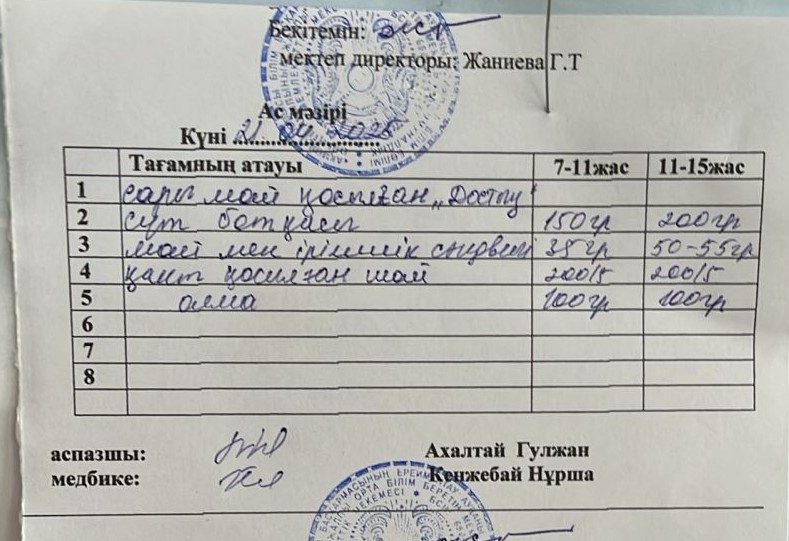 Бекітемін:
мектеп директоры: Жаниева Г.Т
Ас мәзірі
Күні 21.04.2025
Тағамның атауы 7-11жас 11-15жас
1 сары май қосылған „Достық"
2 сүт ботқасы 150гр 200гр
3 май мен ірімшік сэндвич 35гр 50-55гр
4 қант қосылған шай 200/5 200/5
5 алма 100гр 100гр
6
7
8
аспазшы: Ахалтай Гулжан
медбике: Кенжебай Нұрша